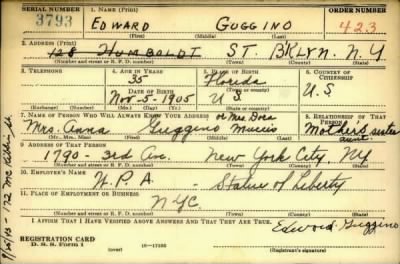 SERIAL NUMBER 1. NAME (Print) ORDER NUMBER
3793 EDWARD GUGGINO 423
(First) (Middle) (Last)
2. ADDRESS (Print)
128 HUMBOLDT ST. BKLYN. N.Y
(Number and street or R. F. D. number) (Town) (County) (State)
3. TELEPHONE 4. AGE IN YEARS 5. PLACE OF BIRTH 6. COUNTRY OF CITIZENSHIP
35 Florida
DATE OF BIRTH (Town or county)
Nov-5-1905 U S U.S.
(Exchange) (Number) (Mo.) (Day) (Yr.) (State or country)
7. NAME OF PERSON WHO WILL ALWAYS KNOW YOUR ADDRESS or Mrs. Dora 8. RELATIONSHIP OF THAT PERSON
Mrs. Anna Guggino Muccio Mothers sister
aunt
(Mr., Mrs., Miss) (First) (Middle) (Last)
9. ADDRESS OF THAT PERSON
1790-3rd Av. New York City, NY
(Number and street or R. F. D. number) (Town) (County) (State)
10. EMPLOYER'S NAME
W.P.A. - Statue of Liberty
11. PLACE OF EMPLOYMENT OR BUSINESS
NYC.
(Number and street or R. F. D. number) (Town) (County) (State)
I AFFIRM THAT I HAVE VERIFIED ABOVE ANSWERS AND THAT THEY ARE TRUE.
Edward Guggino
REGISTRATION CARD
D. S. S. Form 1 (over) 16-17105 (Registrant's signature)